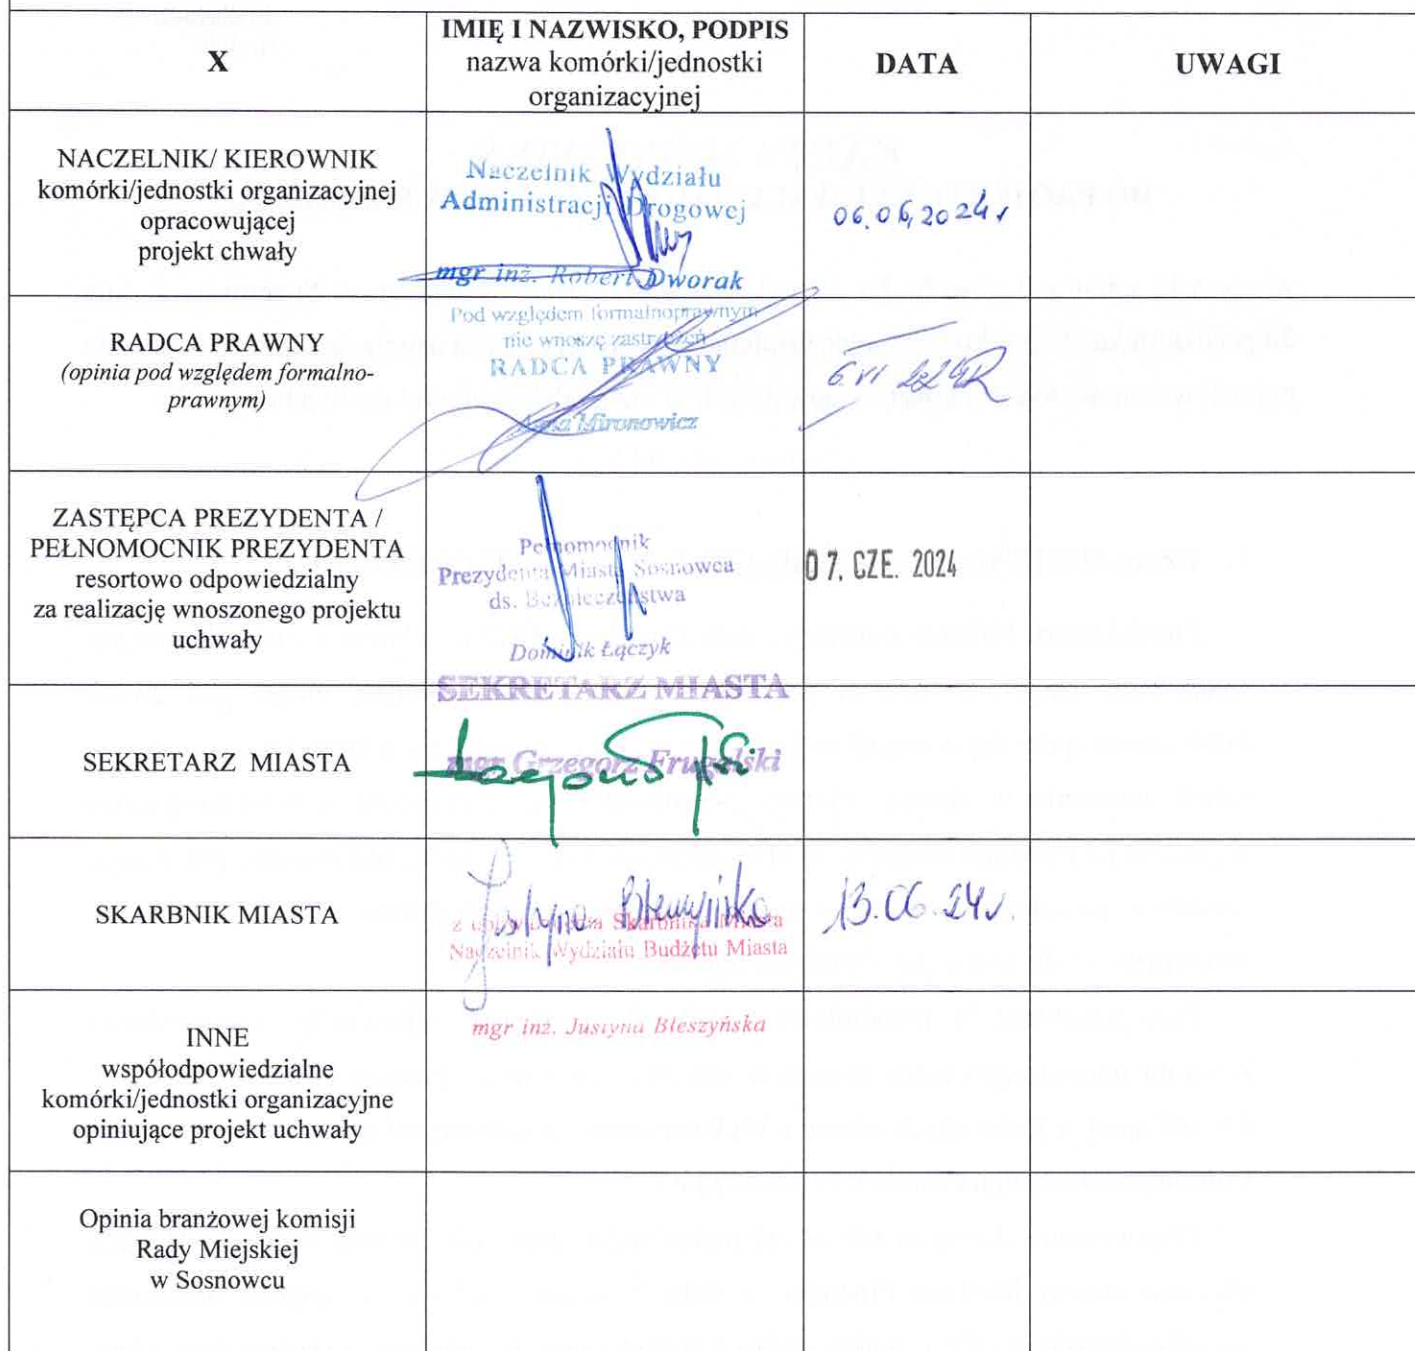 X
IMIĘ I NAZWISKO, PODPIS
nazwa komórki/jednostki
organizacyjnej
DATA
UWAGI
NACZELNIK/ KIEROWNIK
komórki/jednostki organizacyjnej
opracowującej
projekt chwały
Naczelnik Wydziału
Administracji Drogowej
mgr inż. Robert Dworak
06.06.2024r
RADCA PRAWNY
(opinia pod względem formalno-
prawnym)
Pod względem formalnoprawnym
nie wnoszę zastrzeżeń
RADCA PRAWNY
Anna Mironowicz
6 VI 2024R
ZASTĘPCA PREZYDENTA /
PEŁNOMOCNIK PREZYDENTA
resortowo odpowiedzialny
za realizację wnoszonego projektu
uchwały
Pełnomocnik
Prezydenta Miasta Sosnowca
ds. Bezpieczeństwa
Dominik Łączyk
07. CZE. 2024
SEKRETARZ MIASTA
SEKRETARZ MIASTA
mgr Grzegorz Frugalski
SKARBNIK MIASTA
Justyna Błeszyńska
z upoważnienia Skarbnika Miasta
Naczelnik Wydziału Budżetu Miasta
mgr inż. Justyna Błeszyńska
13.06.24r.
INNE
współodpowiedzialne
komórki/jednostki organizacyjne
opiniujące projekt uchwały
Opinia branżowej komisji
Rady Miejskiej
w Sosnowcu